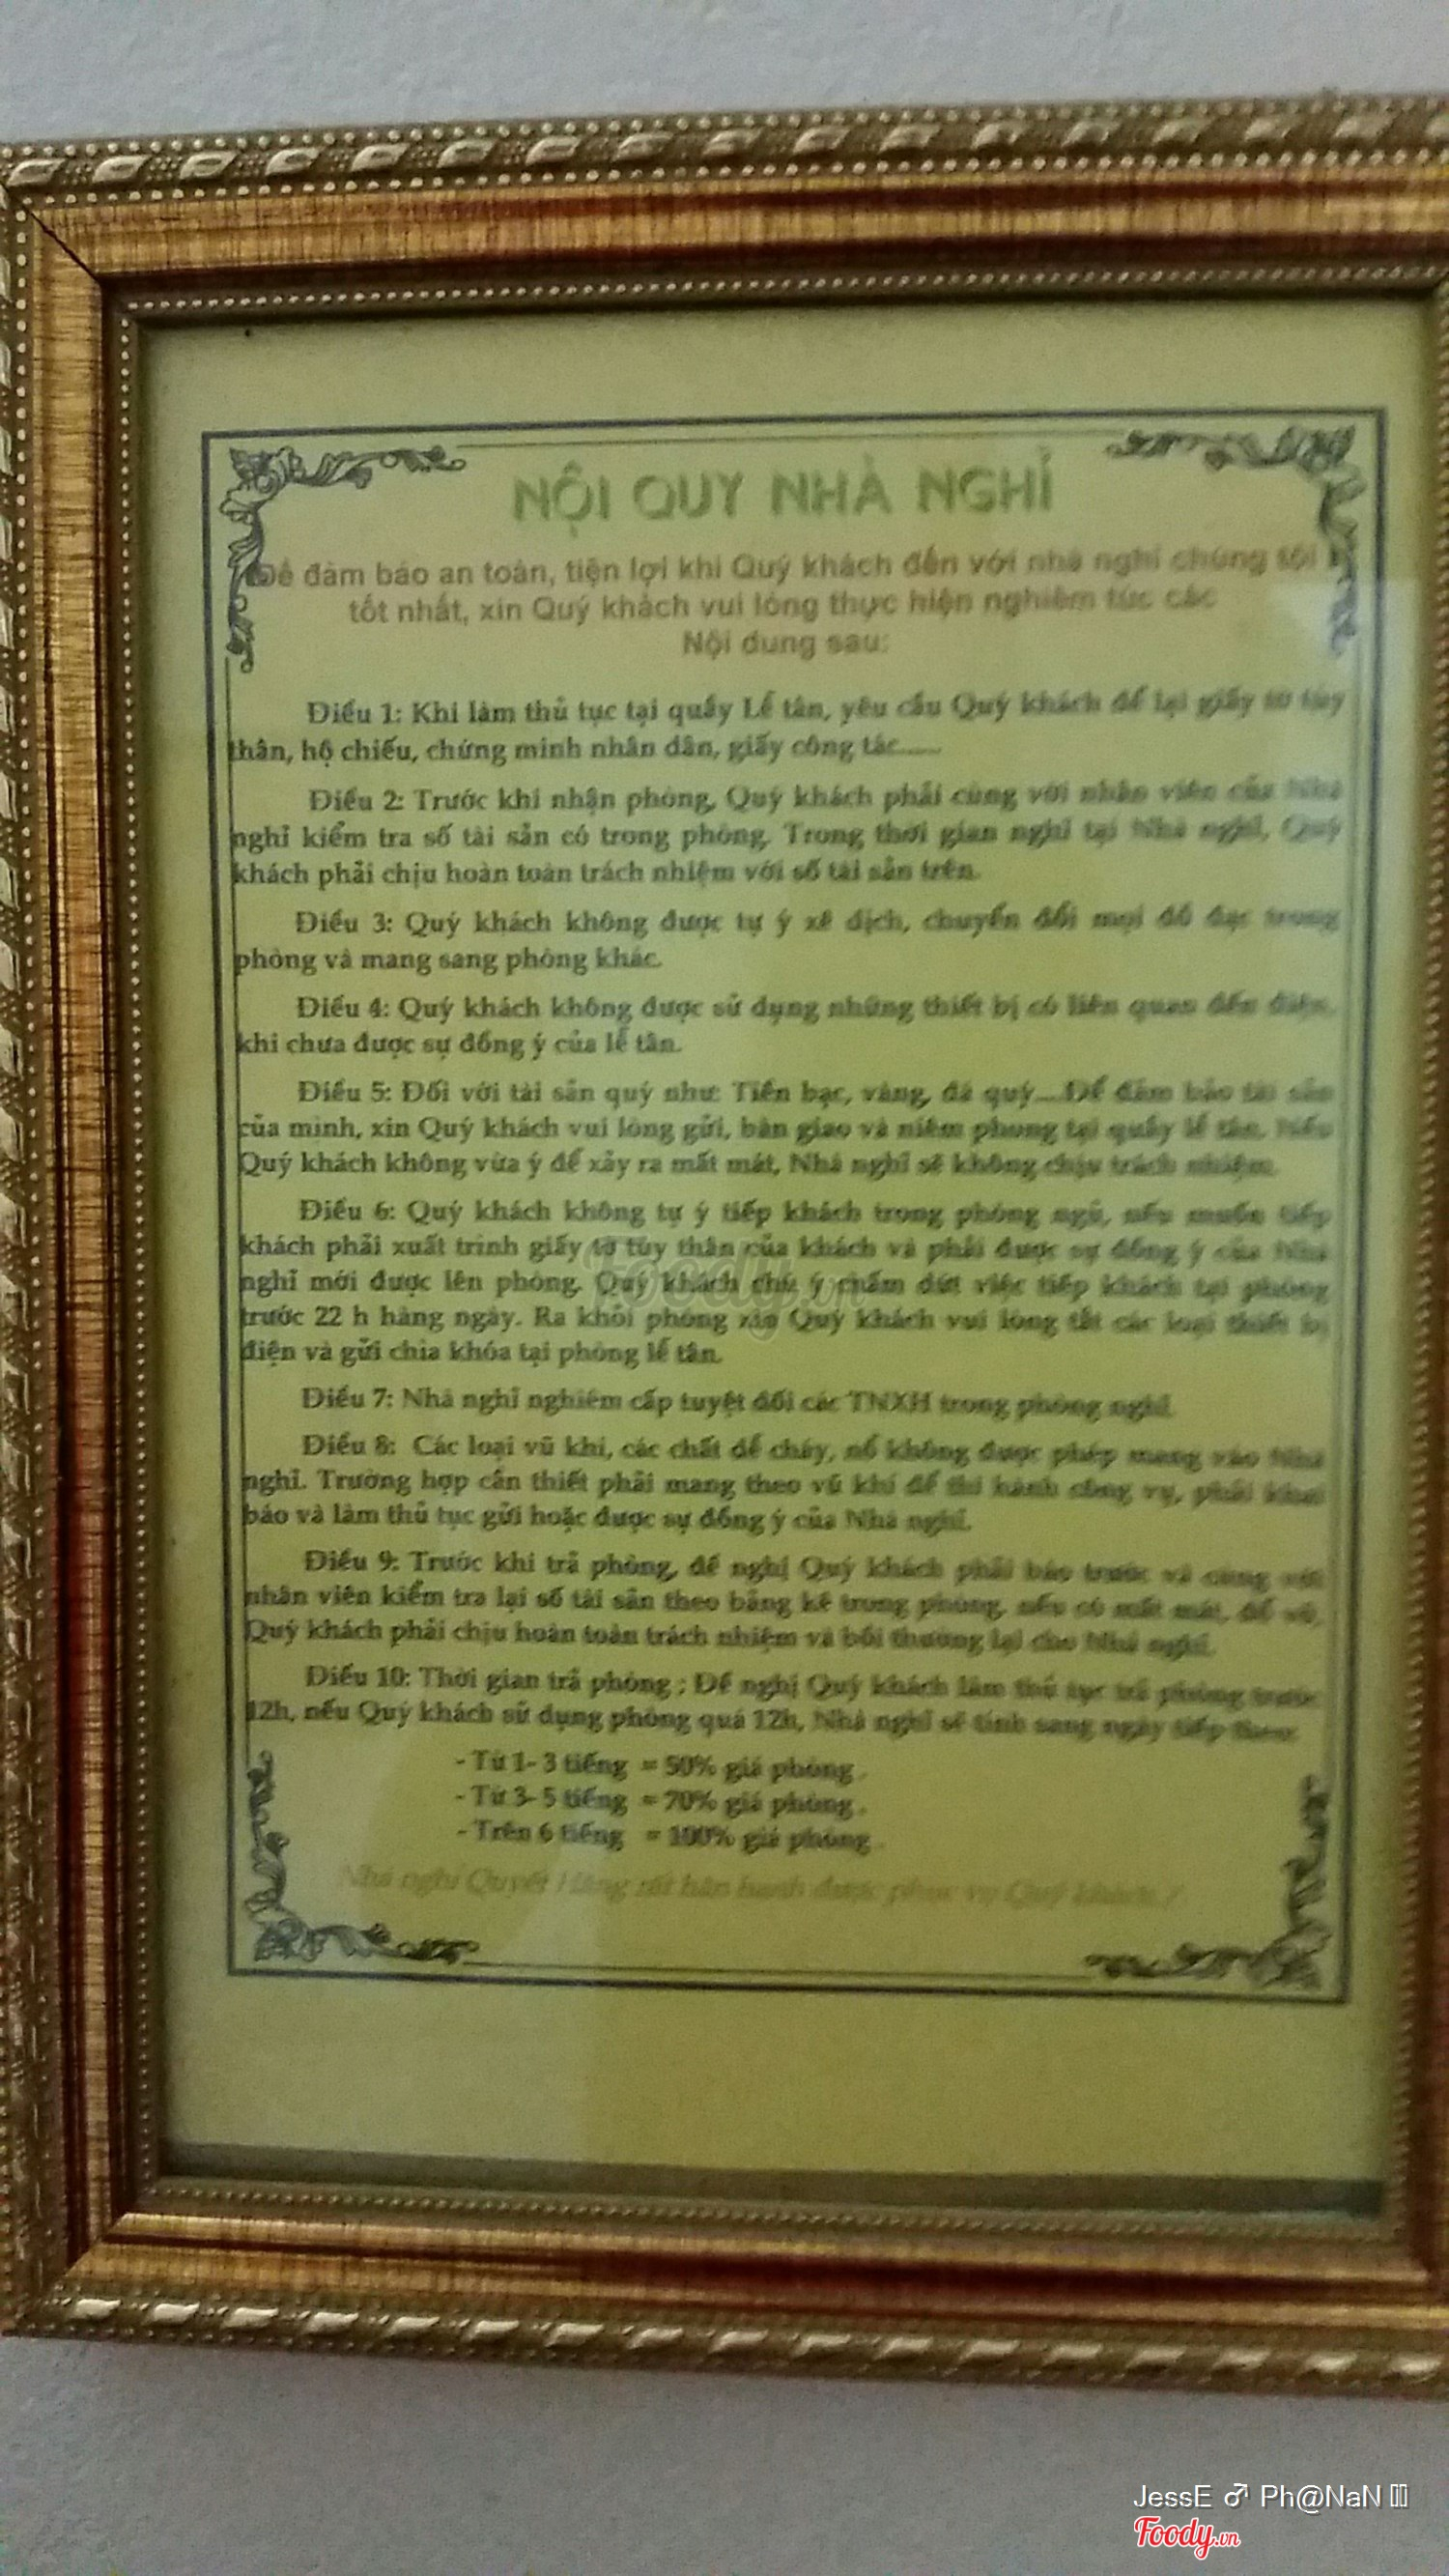 NỘI QUY NHÀ NGHỈ
Để đảm bảo an toàn, tiện lợi khi Quý khách đến với nhà nghỉ chúng tôi
tốt nhất, xin Quý khách vui lòng thực hiện nghiêm túc các
Nội dung sau:
Điều 1: Khi làm thủ tục tại quầy Lễ tân, yêu cầu Quý khách để lại giấy tờ tùy
thân, hộ chiếu, chứng minh nhân dân, giấy công tác......
Điều 2: Trước khi nhận phòng, Quý khách phải cùng với nhân viên của Nhà
nghỉ kiểm tra số tài sản có trong phòng. Trong thời gian nghỉ tại Nhà nghỉ, Quý
khách phải chịu hoàn toàn trách nhiệm với số tài sản trên.
Điều 3: Quý khách không được tự ý xê dịch, chuyển đổi mọi đồ đạc trong
phòng và mang sang phòng khác.
Điều 4: Quý khách không được sử dụng những thiết bị có liên quan đến điện,
khi chưa được sự đồng ý của lễ tân.
Điều 5: Đối với tài sản quý như: Tiền bạc, vàng, đá quý....Để đảm bảo tài sản
của mình, xin Quý khách vui lòng gửi, bàn giao và niêm phong tại quầy lễ tân. Nếu
Quý khách không vừa ý để xảy ra mất mát, Nhà nghỉ sẽ không chịu trách nhiệm.
Điều 6: Quý khách không tự ý tiếp khách trong phòng ngủ, nếu muốn tiếp
khách phải xuất trình giấy tờ tùy thân của khách và phải được sự đồng ý của Nhà
nghỉ mới được lên phòng. Quý khách chú ý chấm dứt việc tiếp khách tại phòng
trước 22 h hàng ngày. Ra khỏi phòng xin Quý khách vui lòng tắt các loại thiết bị
điện và gửi chìa khóa tại phòng lễ tân.
Điều 7: Nhà nghỉ nghiêm cấp tuyệt đối các TNXH trong phòng nghỉ.
Điều 8: Các loại vũ khí, các chất dễ cháy, nổ không được phép mang vào Nhà
nghỉ. Trường hợp cần thiết phải mang theo vũ khí để thi hành công vụ, phải khai
báo và làm thủ tục gửi hoặc được sự đồng ý của Nhà nghỉ.
Điều 9: Trước khi trả phòng, đề nghị Quý khách phải báo trước và cùng với
nhân viên kiểm tra lại số tài sản theo bảng kê trong phòng, nếu có mất mát, đổ vỡ,
Quý khách phải chịu hoàn toàn trách nhiệm và bồi thường lại cho Nhà nghỉ.
Điều 10: Thời gian trả phòng ; Đề nghị Quý khách làm thủ tục trả phòng trước
12h, nếu Quý khách sử dụng phòng quá 12h, Nhà nghỉ sẽ tính sang ngày tiếp theo.
- Từ 1- 3 tiếng = 50% giá phòng .
- Từ 3- 5 tiếng = 70% giá phòng .
- Trên 6 tiếng = 100% giá phòng .
Nhà nghỉ Quyết rất hân hạnh được phục vụ Quý khách !
Foody.vn
JessE ♂ Ph@NaN
Foody.vn